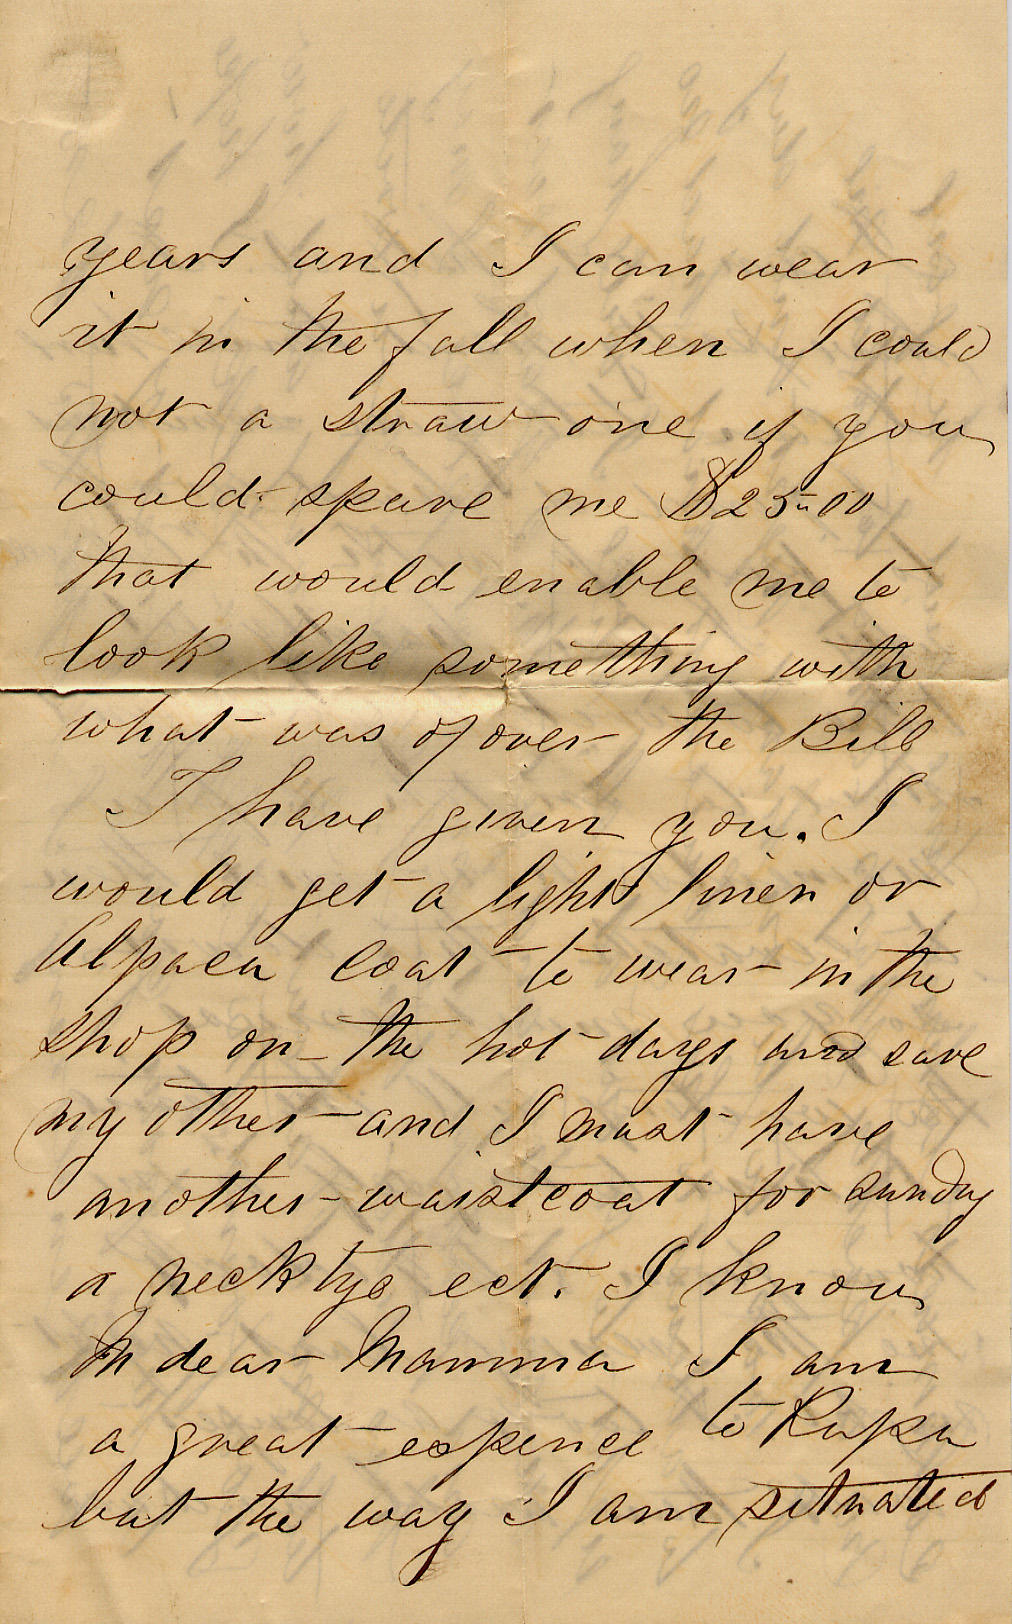 years and I can wear
it in the fall when I could
not a straw one if you
could spare me $25.00
that would enable me to
look like something with
what was of over the Bill
I have given you. I
would get a light linen or
Alpaca coat to wear in the
shop on the hot days and save
my other and I must have
another waistcoat for sunday
a neck tye ect. I know
M dear Mamma I am
a great expence to Papa
but the way I am situated